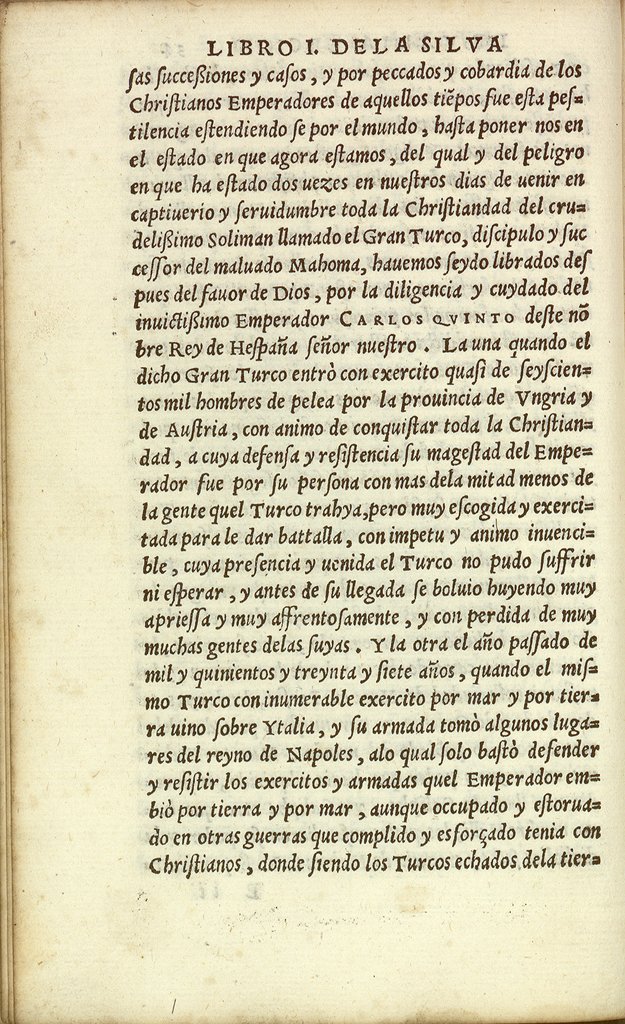 LIBRO I. DE LA SILVA
ſas ſucceßiones y caſos, y por peccados y cobardia de los
Chriſtianos Emperadores de aquellos tiẽpos fue eſta peſ=
tilencia eſtendiendo ſe por el mundo, haſta poner nos en
el eſtado en que agora eſtamos, del qual y del peligro
en que ha eſtado dos uezes en nueſtros dias de uenir en
captiuerio y ſeruidumbre toda la Chriſtiandad del cru=
delißimo Soliman llamado el Gran Turco, diſcipulo y ſuc
ceſſor del maluado Mahoma, hauemos ſeydo librados deſ
pues del fauor de Dios, por la diligencia y cuydado del
inuictißimo Emperador CARLOS QVINTO deſte nõ
bre Rey de Heſpaña ſeñor nueſtro. La una quando el
dicho Gran Turco entrò con exercito quaſi de ſeyſcien=
tos mil hombres de pelea por la prouincia de Vngria y
de Auſtria, con animo de conquiſtar toda la Chriſtian=
dad, a cuya defenſa y reſiſtencia ſu mageſtad del Empe=
rador fue por ſu perſona con mas dela mitad menos de
la gente quel Turco trahya, pero muy eſcogida y exerci=
tada para le dar battalla, con impetu y animo inuenci=
ble, cuya preſencia y uenida el Turco no pudo ſuffrir
ni eſperar, y antes de ſu llegada ſe boluio huyendo muy
aprieſſa y muy affrentoſamente, y con perdida de muy
muchas gentes delas ſuyas. Y la otra el año paſſado de
mil y quinientos y treynta y ſiete años, quando el miſ=
mo Turco con inumerable exercito por mar y por tier=
ra uino ſobre Ytalia, y ſu armada tomò algunos luga=
res del reyno de Napoles, alo qual ſolo baſtò defender
y reſiſtir los exercitos y armadas quel Emperador em=
biò por tierra y por mar, aunque occupado y eſtorua=
do en otras guerras que complido y esforçado tenia con
Chriſtianos, donde ſiendo los Turcos echados dela tier=